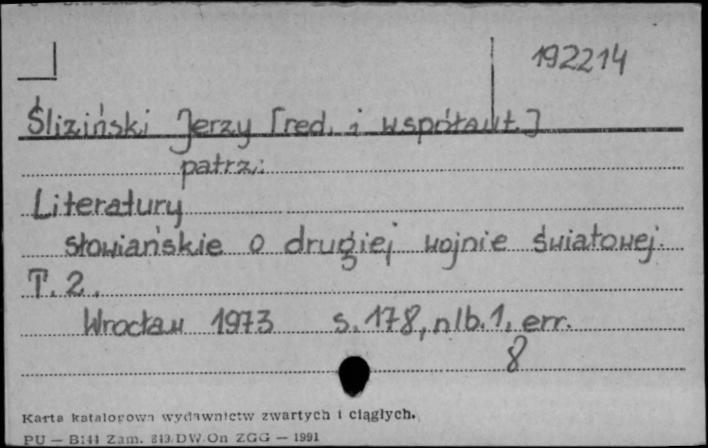 192214
Śliziński Jerzy [red. i współaut.]
patrz:
Literatury
słowiańskie o drugiej wojnie światowej.
T. 2.
Wrocław 1973 s. 178, nlb. 1, err.
8
Karta katalogowa wydawnictw zwartych i ciągłych.
PU — B141 Zam. 813 DW On ZGG — 1991